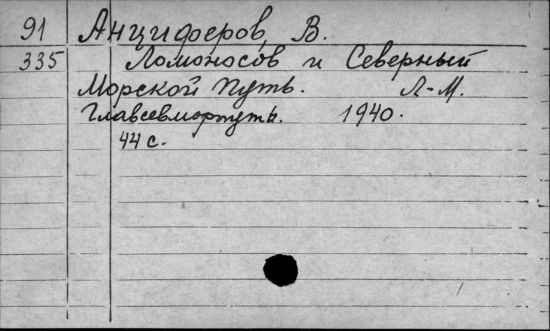 91 Анциферов, В.
335 Ломоносов и Северный
Морской путь. Л-М.
Главсевморпуть. 1940.
44 с.